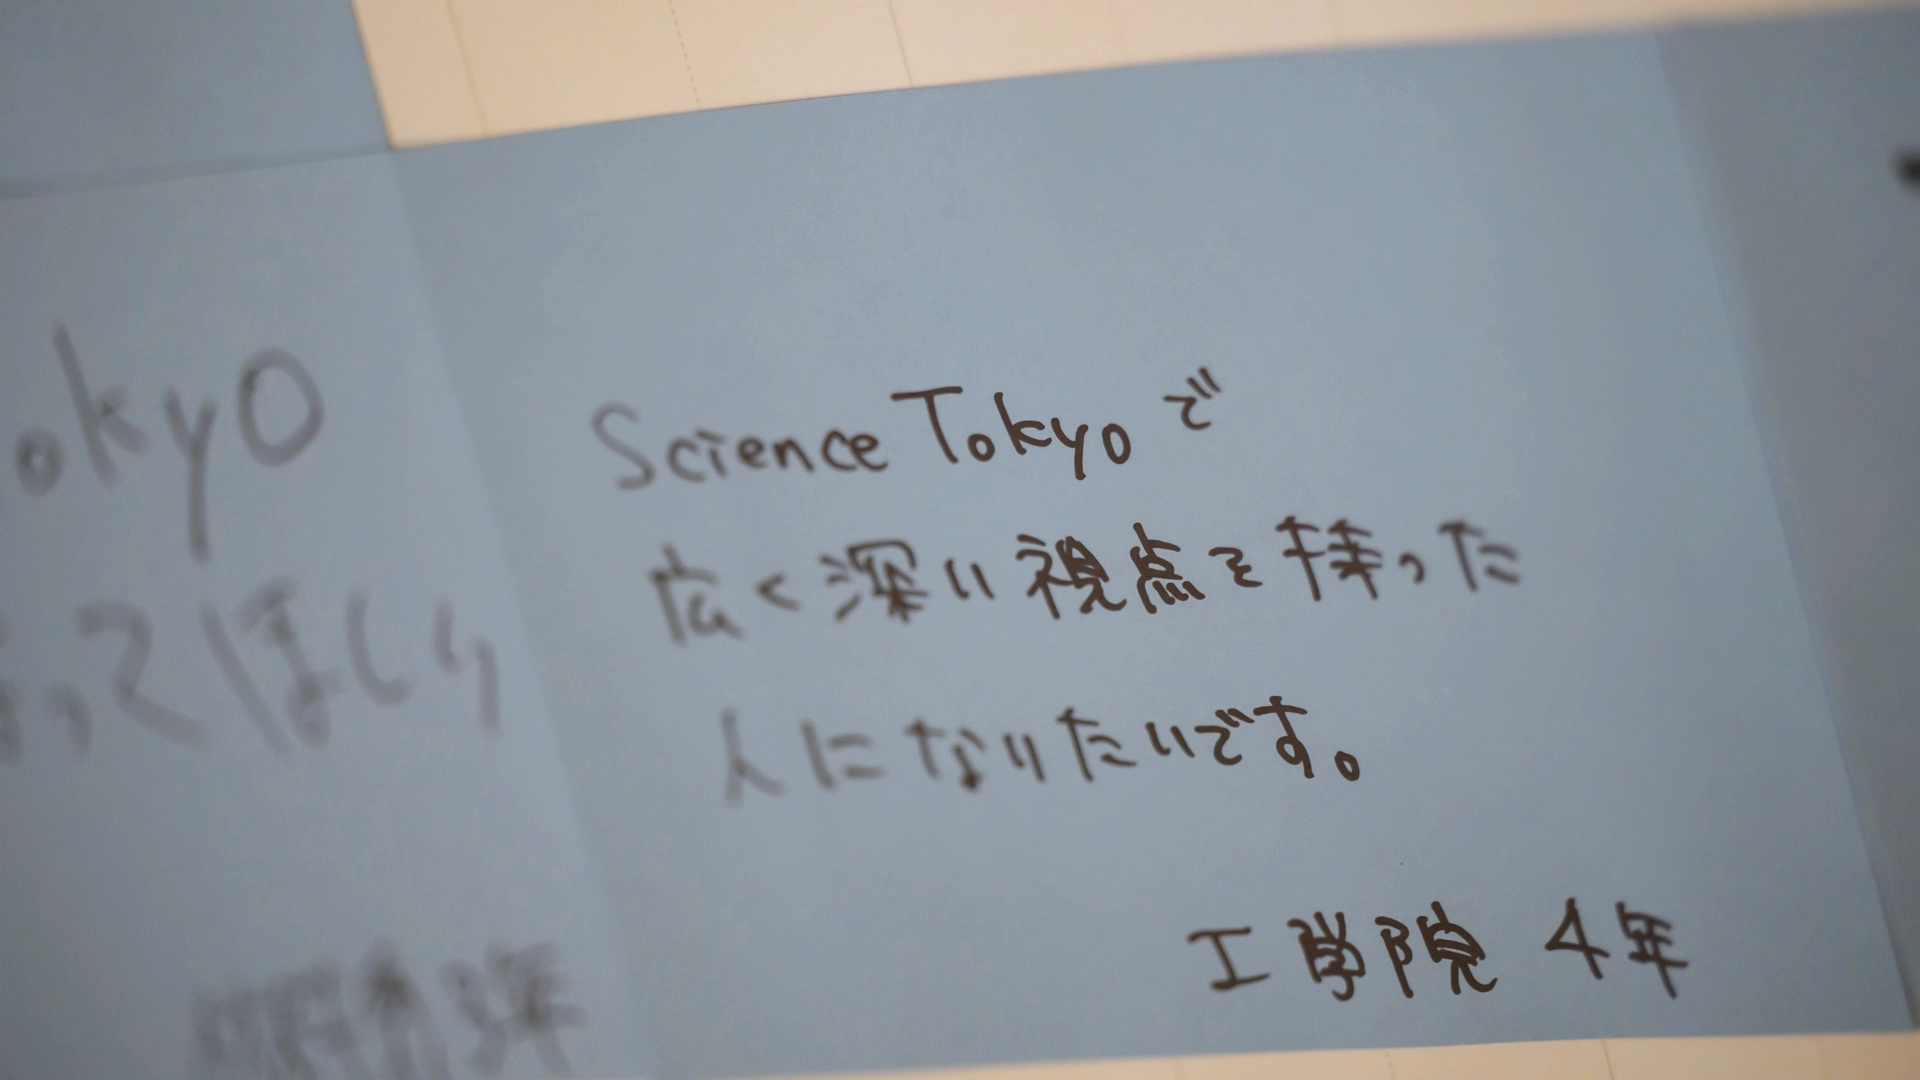 okyo
ってほしい
Science Tokyo で
広く深い視点を持った
人になりたいです。
工学院 4年